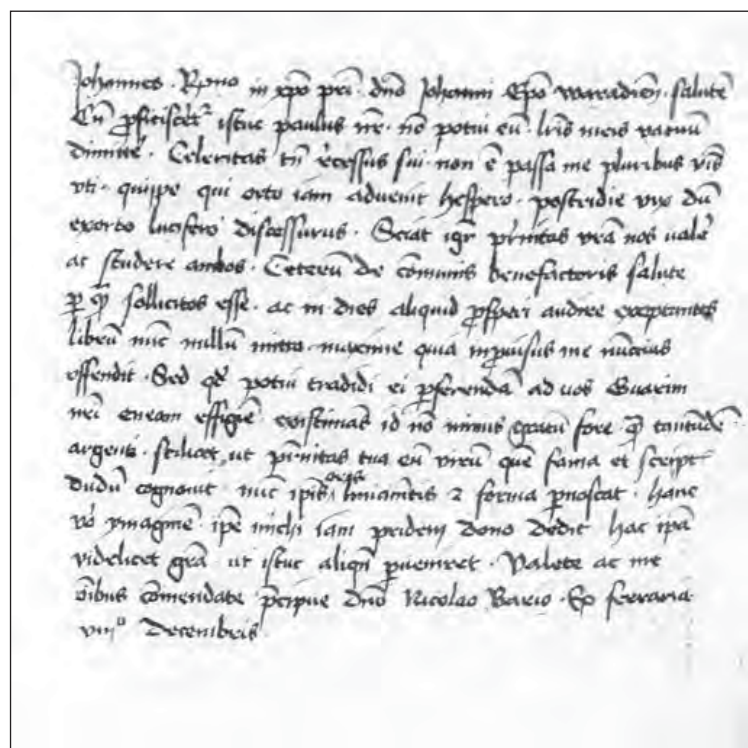 Johannes · Rmo in xpo pri · dno Johanni Epo waradien̄ · salutē
Cū ꝓficiscēr̄ istuc paulus nr̄ · nō potui eū · lr̄is meis vacuū
dimittē · Celeritas tn̄ rēcessus sui · non ē passa me pluribus v̄bis
vti · quippe qui orto iam advenit hespero · postridie vīx dū
exorto lucifero discessurus · Sciat igr̄ pr̄nitas vr̄a nos valē
ac studere ambos · Ceterū de cōmunis benefactoris salute
ꝑ qm̄ sollicitos esse · ac in dies aliquid ꝓsperi audire exceptantes
librū nūc nullū mitto · maxime quia inprovisus me nūccius
offendit · Sed qd̄ potui tradidi ei ꝑferendā ad uos Guarini
mei eneam effigiē existimās id nō minus gratū fore qm̄ tantūdē
argenti · scilicet ut pr̄nitas tua eū virū quē fama et scriptis
dudū cognovit nūc ipīs oris liniamētis ⁊ forma ꝑnoscat · hanc
vo ymaginē ip̄e michi iam pridem dono dedit hac ip̄a
videlicet grā ut istuc aliqn̄ ꝑveniret · Valete ac me
oībus cōmendate p̄cipue dno Nicolao Bario · Ex ferraria
viiiº decembris ·